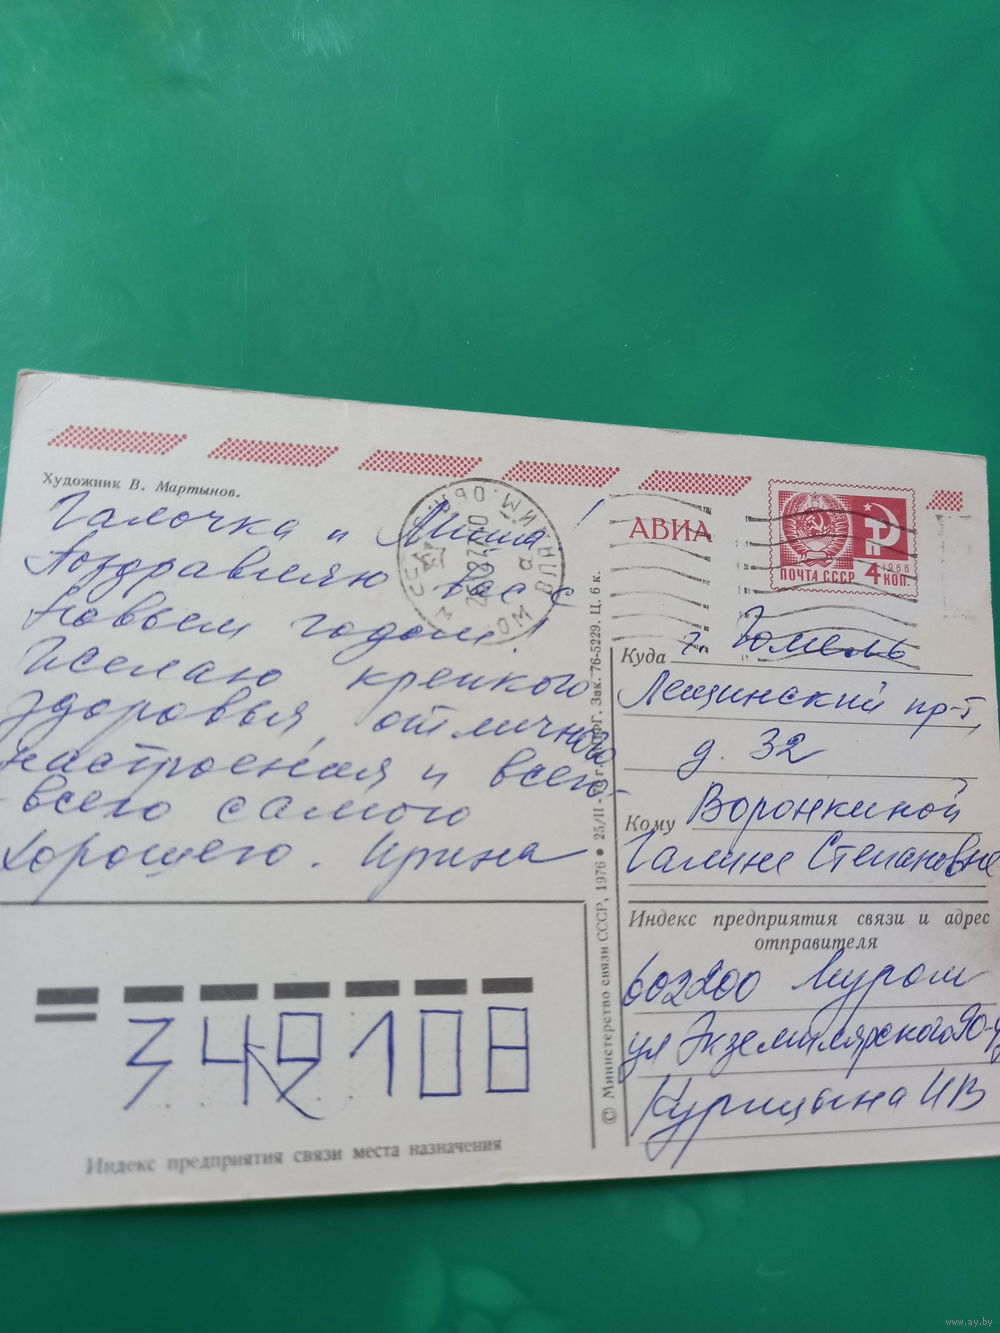 Художник В. Мартынов.
Галочка и Миша!
Поздравляю вас с
Новым годом!
Желаю крепкого
здоровья, отличного
настроения и всего-
всего самого
хорошего. Ирина
АВИА
ПОЧТА СССР
1966
4 КОП.
Куда г. Гомель
Лещинский пр-т,
д. 32
Кому Воронкиной
Галине Степановне
Индекс предприятия связи и адрес
отправителя
602200 Муром
ул Экземплярского 90-
Курицына ИВ
© Министерство связи СССР, 1976 ● 25/II - г. Зак. 76-5229. Ц. 6 к.
108
Индекс предприятия связи места назначения
www.ay.by